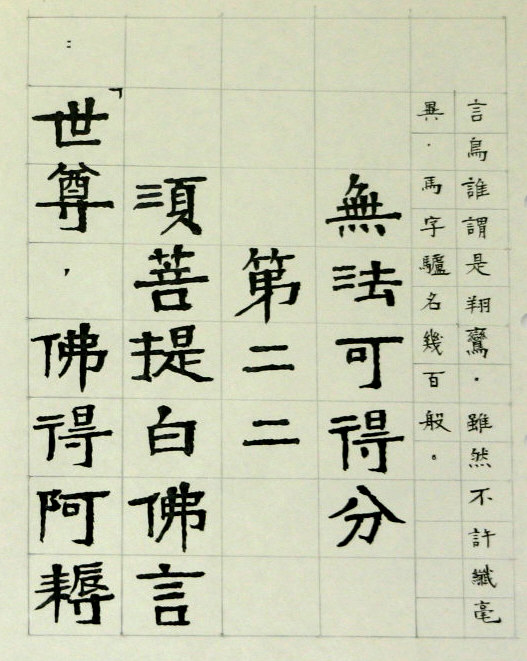 言鳥誰謂是翔鸞．雖然不許纖毫
異．馬字驢名幾百般。
無法可得分
第二二
須菩提白佛言
：「世尊，佛得阿耨